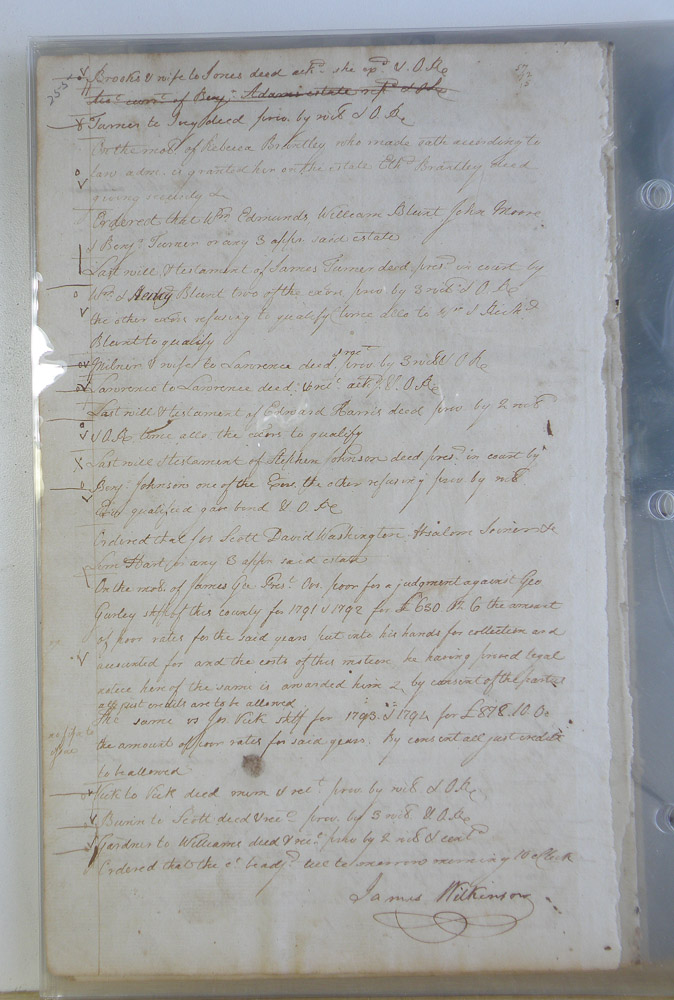 Brooks & wife to Jones deed ackd. she expd. & O. Re
253
Acct. curr.t of Benja. Adams estate retd. & O Re
Turner to Ivey deed prov. by wits & O Re
On the mot. of Rebecca Brantley who made oath according to
law adm. is granted her on the estate Ethd. Brantley deced
giving security &
Ordered that Wm. Edmunds William Blunt John Moore
& Benja. Turner or any 3 appr. said estate
Last will & testament of James Turner deced presd. in court by
Wm. & Henry Blunt two of the exors prov. by 3 wits & O Re
the other exors refusing to qualify time allo to Wm &
Blunt to qualify
Milner & wife to Lawrence deed prov. by 3 wits & O Re
Lawrence to Lawrence deed & rect. ackd. & O Re
Last will & testament of Edward Harris deced prov. by 2 wits
& O Re time allo. the exors to qualify
Last will & testament of Stephen Johnson deced presd. in court by
Benja. Johnson one of the Exors the other refusing prov. by wits
Exor qualified gave bond & O Re
Ordered that Jos Scott David Washington Absalom Joiner &
Lem Hart or any 3 appr. said estate
On the mot. of James Gee Prest. Ovs. poor for a judgment against Geo
Gurley shff of this county for 1791 & 1792 for £650 12. 6 the amount
of poor rates for the said years put into his hands for collection and
accounted for and the costs of this motion, he having proved legal
notice hereof the same is awarded him & by consent of the parties
all just credits are to be allowed
The same vs Jos Vick shff for 1793 & 1794 for £878. 10. 0
the amount of poor rates for said years. By consent all just credits
to be allowed
Vick to Vick deed mem & rect. prov. by wits & O Re
Bunn to Scott deed & rect. prov. by 3 wits & O Re
Gardner to Williams deed & rect. prov. by 2 wits & contd.
Ordered that the Ct. be adjd. till to morrow morning 10 oClock
James Wilkinson